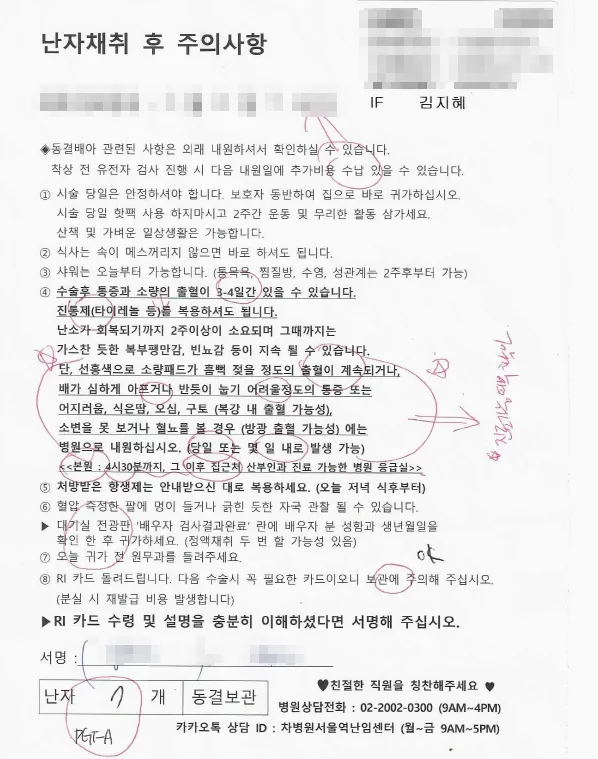 난자채취 후 주의사항
IF 김지혜
◈동결배아 관련된 사항은 외래 내원하셔서 확인하실 수 있습니다.
착상 전 유전자 검사 진행 시 다음 내원일에 추가비용 수납 있을 수 있습니다.
① 시술 당일은 안정하셔야 합니다. 보호자 동반하여 집으로 바로 귀가하십시오.
시술 당일 핫팩 사용 하지마시고 2주간 운동 및 무리한 활동 삼가세요.
산책 및 가벼운 일상생활은 가능합니다.
② 식사는 속이 메스꺼리지 않으면 바로 하셔도 됩니다.
③ 샤워는 오늘부터 가능합니다. (통목욕, 찜질방, 수영, 성관계는 2주후부터 가능)
④ 수술후 통증과 소량의 출혈이 3-4일간 있을 수 있습니다.
진통제(타이레놀 등)를 복용하셔도 됩니다.
난소가 회복되기까지 2주이상이 소요되며 그때까지는
가스찬 듯한 복부팽만감, 빈뇨감 등이 지속 될 수 있습니다.
단, 선홍색으로 소량패드가 흠뻑 젖을 정도의 출혈이 계속되거나,
배가 심하게 아프거나 반듯이 눕기 어려울정도의 통증 또는
어지러움, 식은땀, 오심, 구토 (복강 내 출혈 가능성),
소변을 못 보거나 혈뇨를 볼 경우 (방광 출혈 가능성) 에는
병원으로 내원하십시오. (당일 또는 몇 일 내로 발생 가능)
<<본원 : 4시30분까지, 그 이후 집근처 산부인과 진료 가능한 병원 응급실>>
⑤ 처방받은 항생제는 안내받으신 대로 복용하세요. (오늘 저녁 식후부터)
⑥ 혈압 측정한 팔에 멍이 들거나 긁힌 듯한 자국 관찰 될 수 있습니다.
▶ 대기실 전광판 '배우자 검사결과완료' 란에 배우자 분 성함과 생년월일을
확인 한 후 귀가하세요. (정액채취 두 번 할 가능성 있음)
⑦ 오늘 귀가 전 원무과를 들려주세요.
OK
⑧ RI 카드 돌려드립니다. 다음 수술시 꼭 필요한 카드이오니 보관에 주의해 주십시오.
(분실 시 재발급 비용 발생합니다)
▶RI 카드 수령 및 설명을 충분히 이해하셨다면 서명해 주십시오.
서명 :
난자 7 개 동결보관
PGT-A
♥친절한 직원을 칭찬해주세요 ♥
병원상담전화 : 02-2002-0300 (9AM~4PM)
카카오톡 상담 ID : 차병원서울역난임센터 (월~금 9AM~5PM)